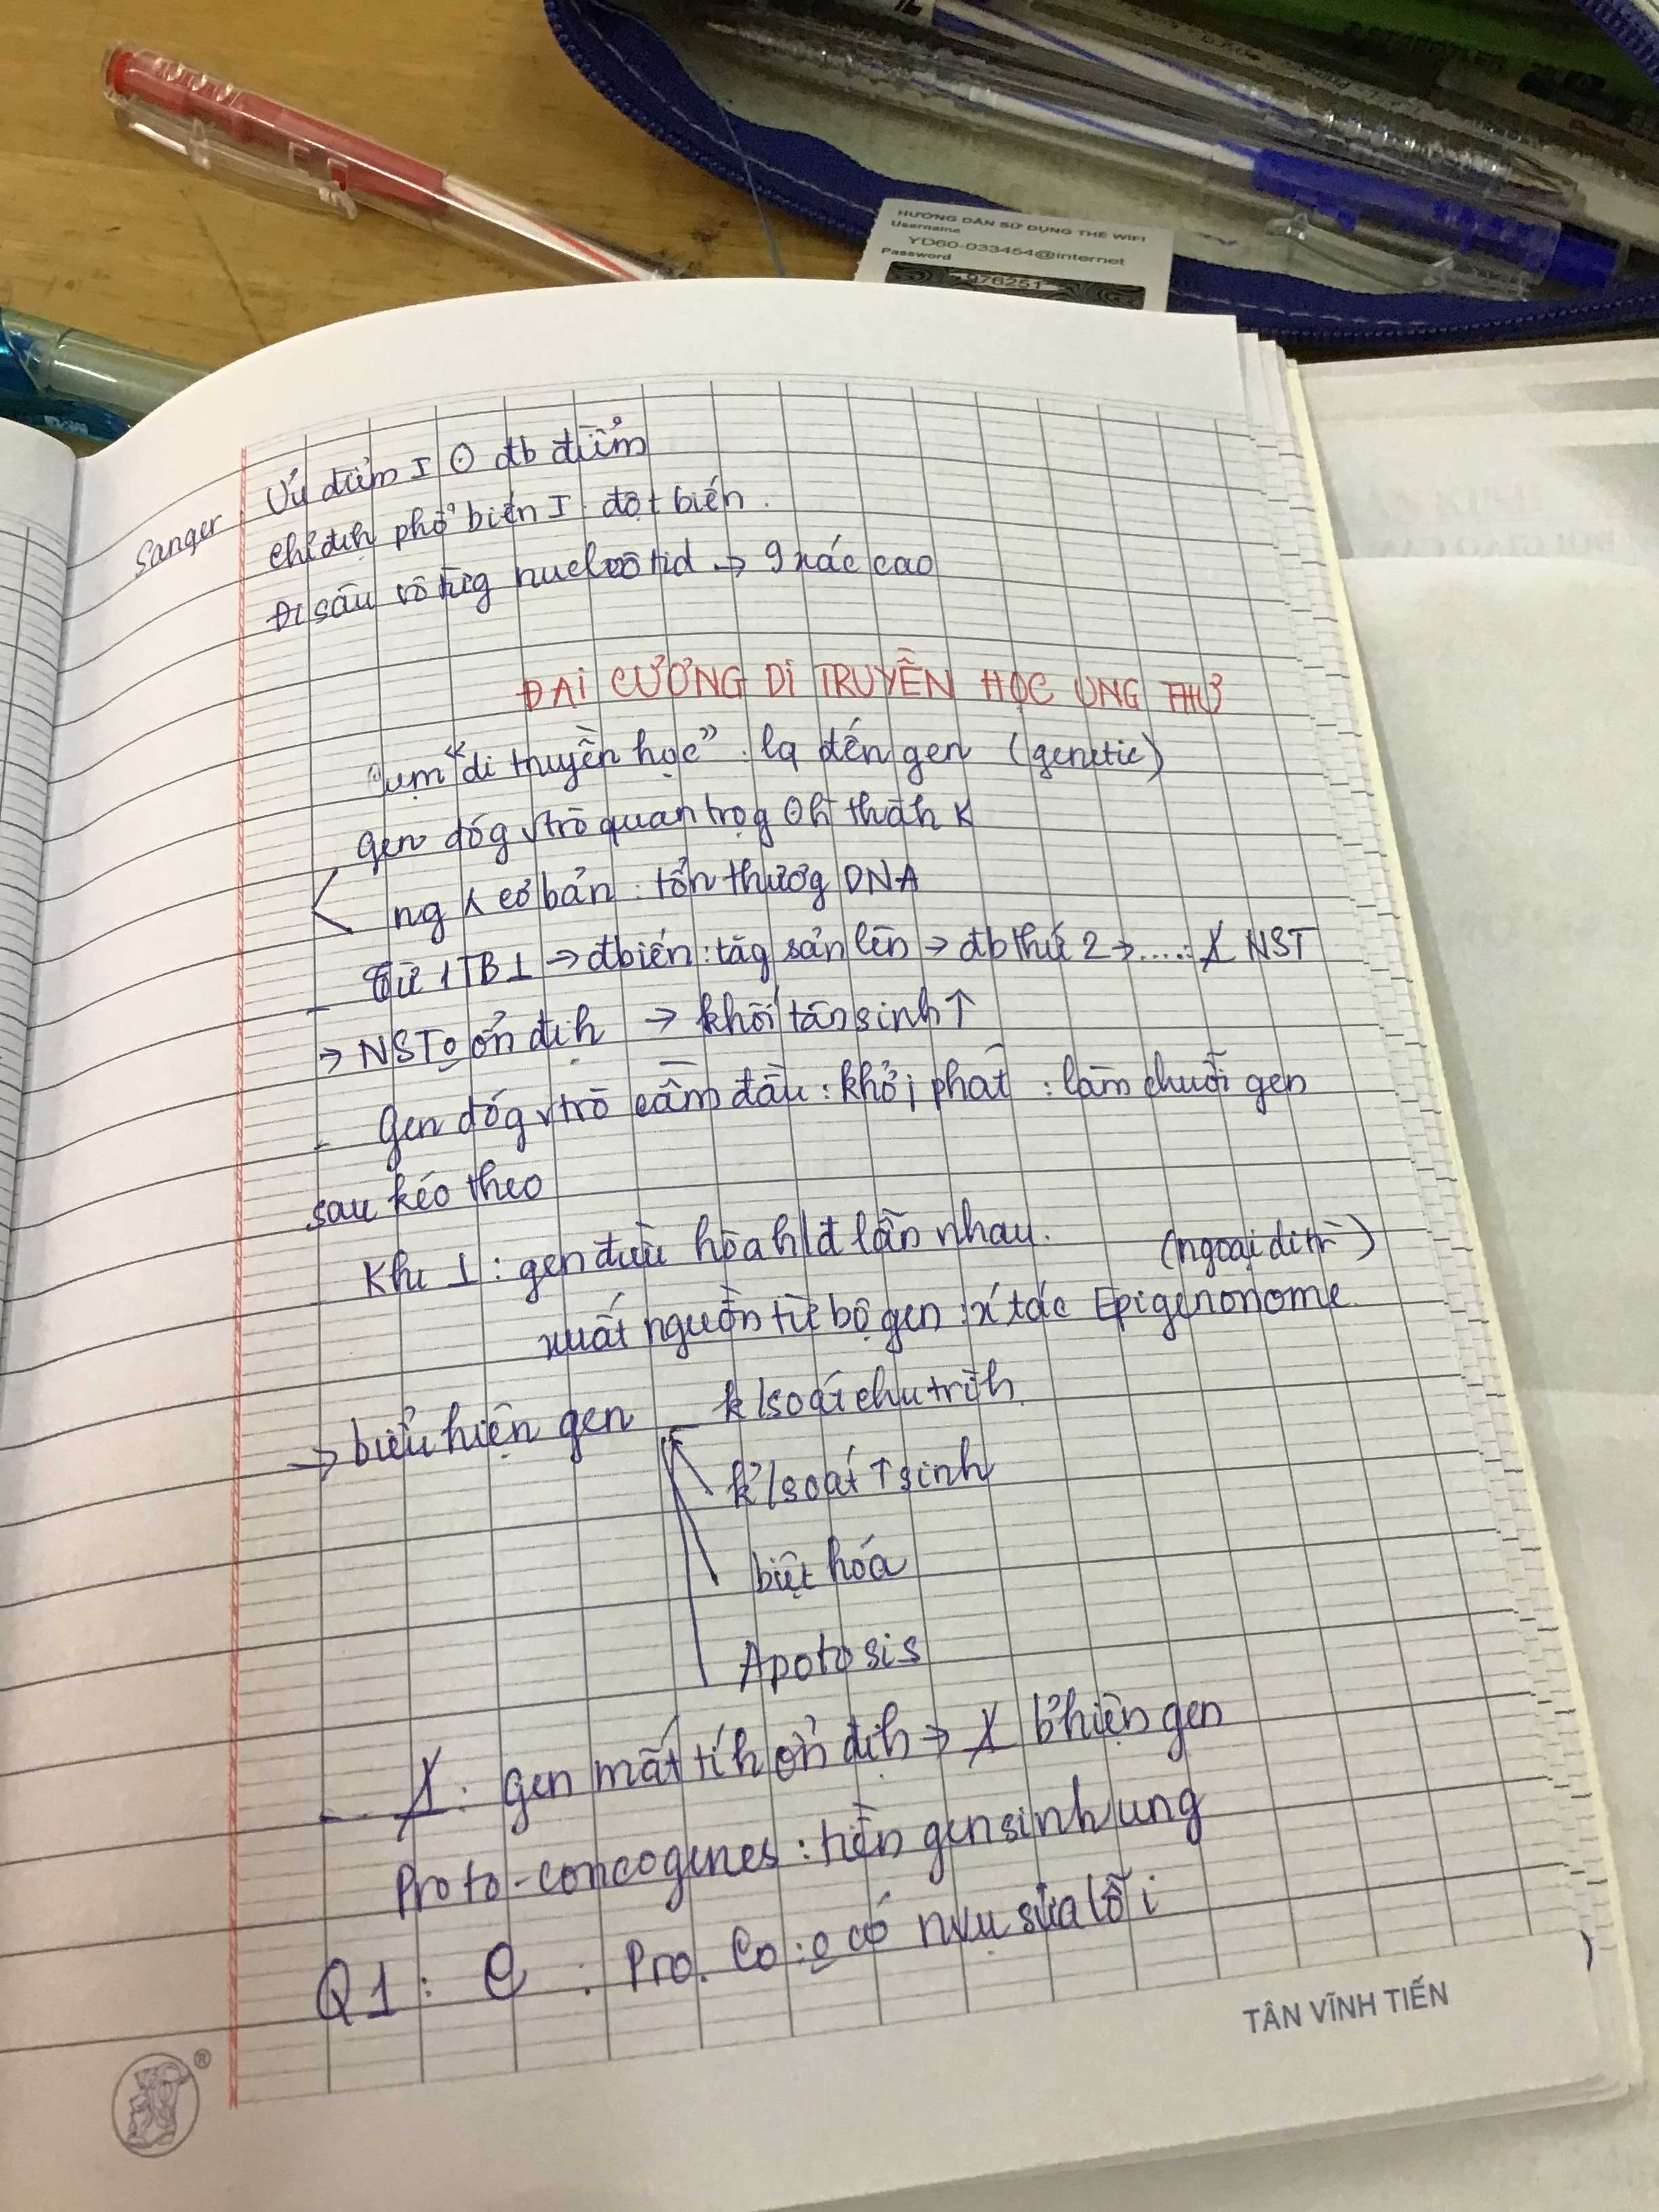 HƯỚNG DẪN SỬ DỤNG THẺ WIFI
Username
YD60-033454@internet
Password
976251
Sanger
Ưu điểm I ʘ đb điểm
chỉ định phổ biến I đột biến.
Đi sâu vô từg nucleotid → 9 xác cao
ĐẠI CƯƠNG DI TRUYỀN HỌC UNG THƯ
Cụm "di truyền học": lq đến gen (genetic)
gen đóg vtrò quan trọg ʘh thành K
ng K cơ bản: tổn thươg DNA
- Từ 1 TB ⊥ → đbiến: tăg sản lên → đb thứ 2 → ....: NST
→ NST o ổn địh → khối tân sinh ↑
- Gen đóg vtrò cầm đầu: khởi phát: làm chuỗi gen
sau kéo theo
Khi ⊥: gen điều hòa hđ lẫn nhau.
(ngoại di tr)
xuất nguồn từ bộ gen: tác Epigenonome
→ biểu hiện gen
k/soát chu trìh
k/soát ↑ sinh
biệt hóa
Apotosis
- ⊥̸: gen mất tíh ổn địh → b'hiện gen
Proto-concogenes: tiền gen sinh ung
Q1: C: Pro. Co: o có nvụ sửa lỗi
TÂN VĨNH TIẾN
®